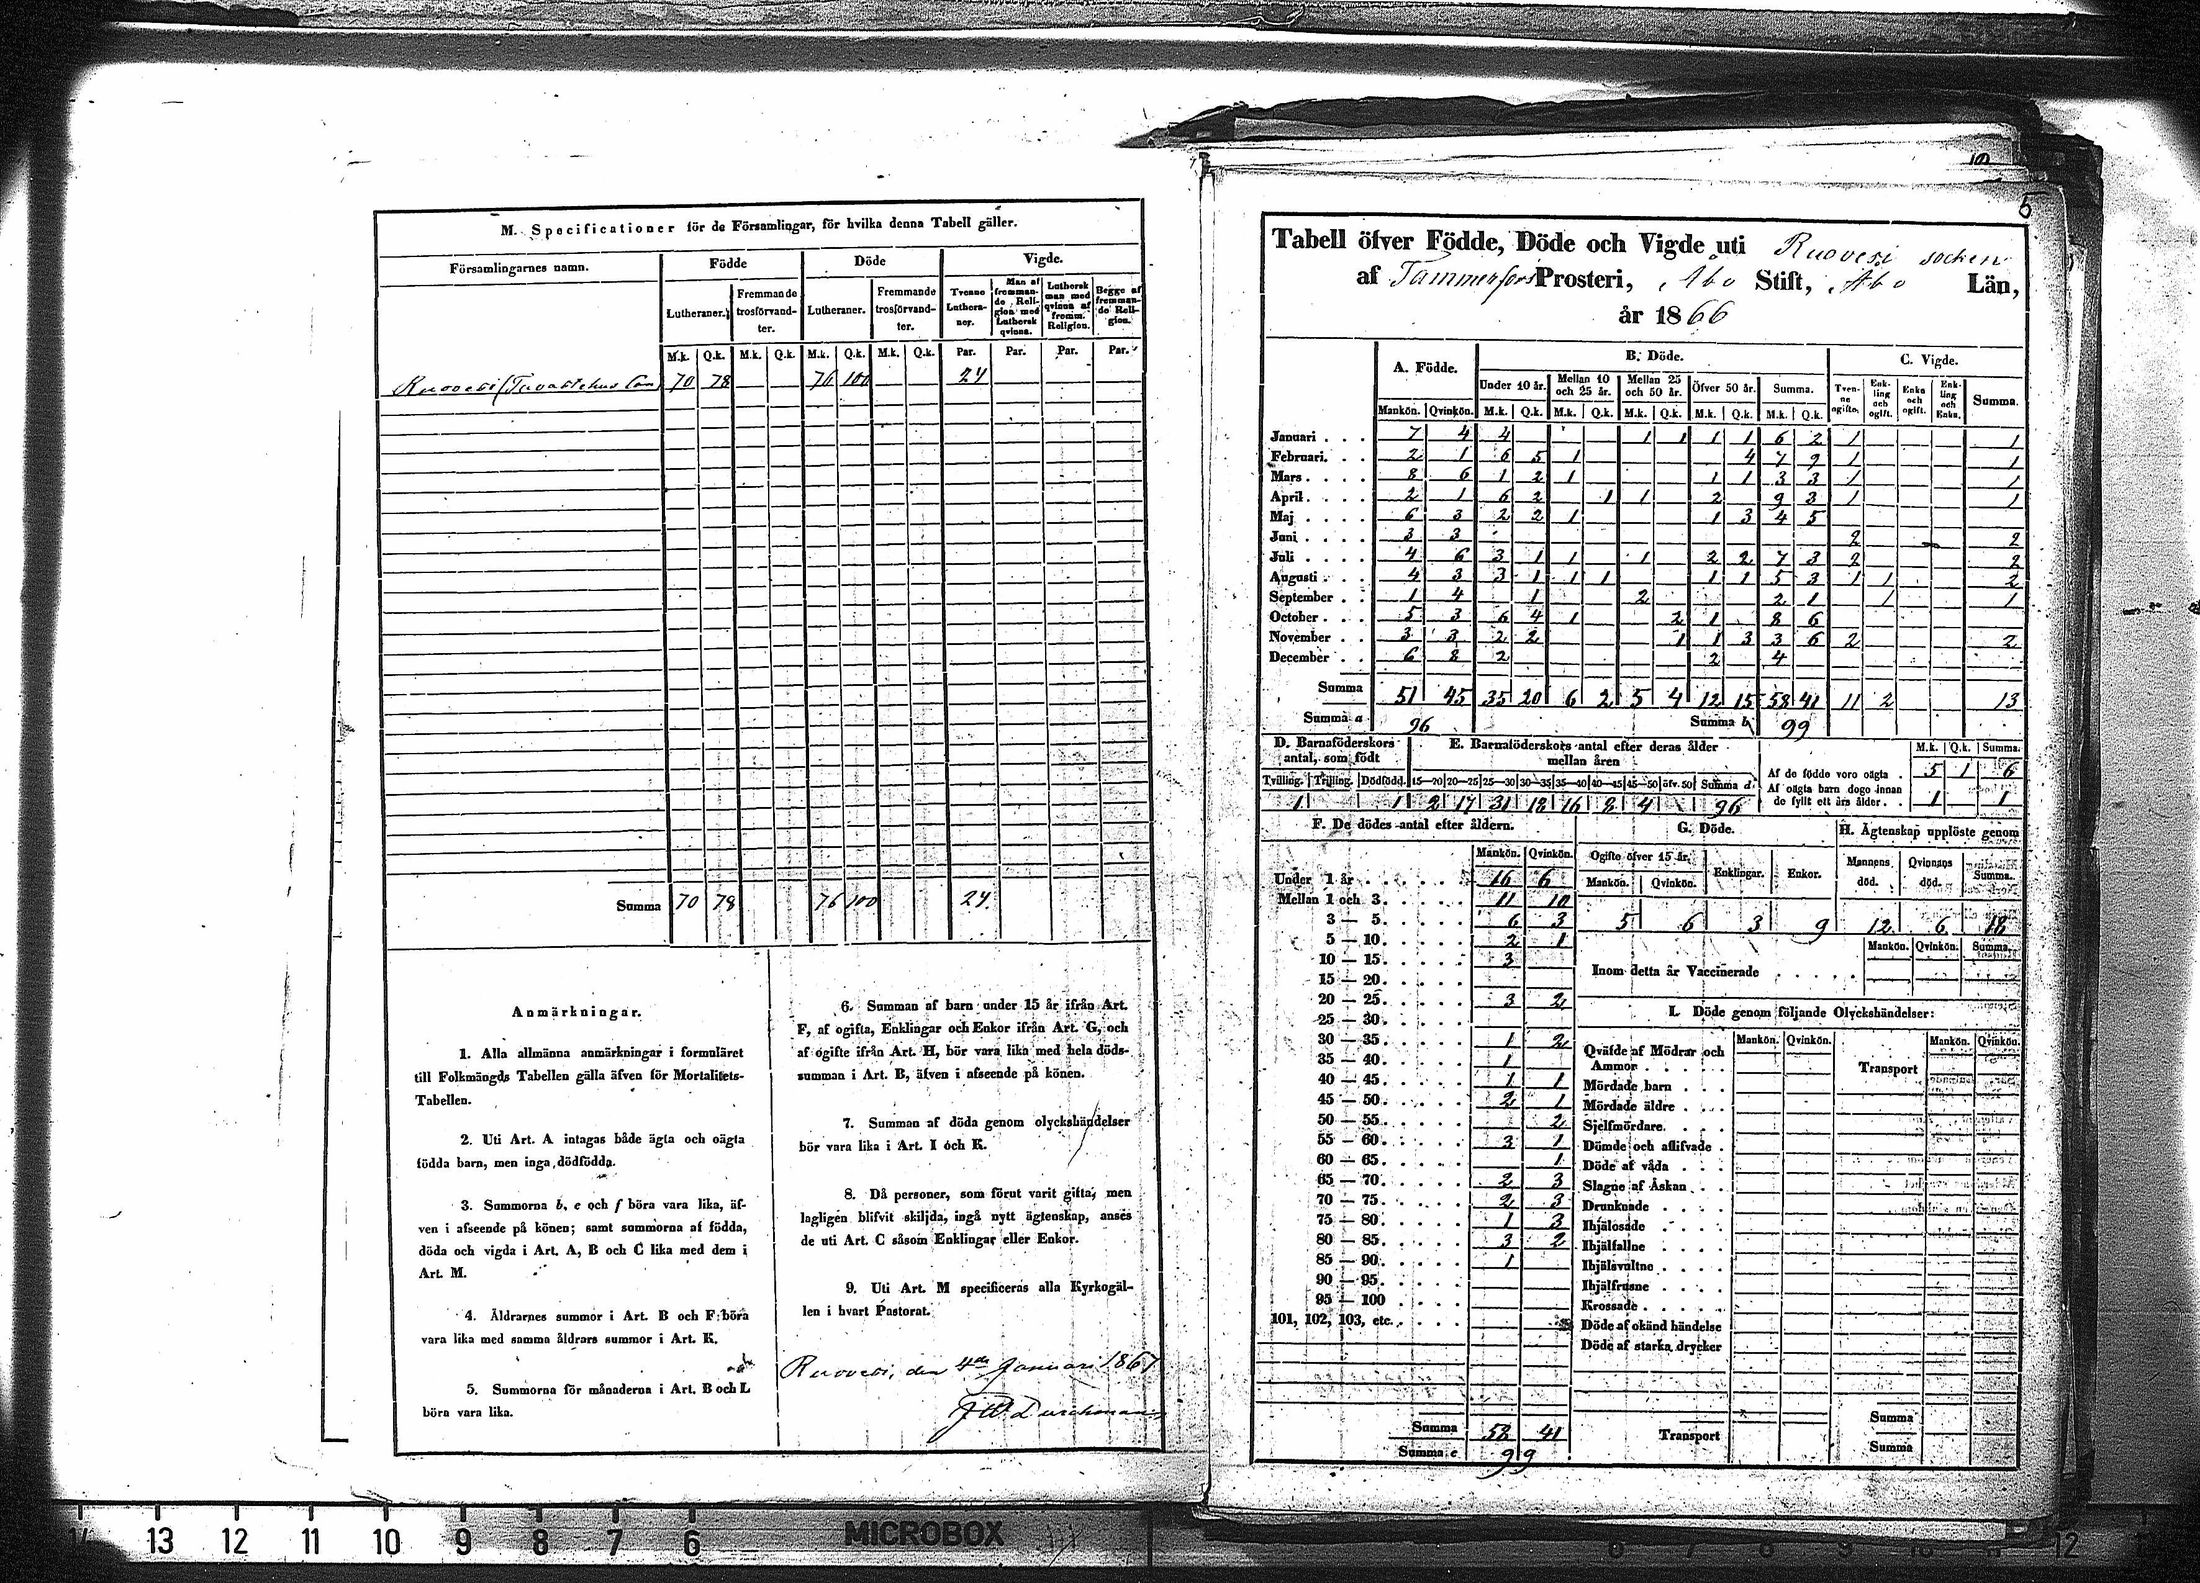 M. Specificationer för de Församlingar, för hvilka denna Tabell gäller.
Församlingarnes namn. Födde Döde Vigde.
Lutheraner. Fremmande trosförvandter. Lutheraner. Fremmande trosförvandter. Trenne Lutheraner. Man af fremmande Religion med Luthersk qvinna. Luthersk man med qvinna af fremm. Religion. Begge af fremmande Religion.
M.k. Q.k. M.k. Q.k. M.k. Q.k. M.k. Q.k. Par. Par. Par. Par.
Ruovesi (Tavastehus Län) 70 78 76 100 24
Summa 70 78 76 100 24
Anmärkningar.
1. Alla allmänna anmärkningar i formuläret
till Folkmängds Tabellen gälla äfven för Mortalitets-
Tabellen.
2. Uti Art. A intagas både ägta och oägta
födda barn, men inga dödfödda.
3. Summorna b, e och f böra vara lika, äf-
ven i afseende på könen; samt summorna af födda,
döda och vigda i Art. A, B och C lika med dem i
Art. M.
4. Åldrarnes summor i Art. B och F böra
vara lika med samma åldrars summor i Art. K.
5. Summorna för månaderna i Art. B och L
böra vara lika.
6. Summan af barn under 15 år ifrån Art.
F, af ogifta, Enklingar och Enkor ifrån Art. G, och
af ogifte ifrån Art. H, bör vara lika med hela döds-
summan i Art. B, äfven i afseende på könen.
7. Summan af döda genom olyckshändelser
bör vara lika i Art. I och K.
8. Då personer, som förut varit gifta, men
lagligen blifvit skiljda, ingå nytt ägtenskap, anses
de uti Art. C såsom Enklingar eller Enkor.
9. Uti Art. M specificeras alla Kyrkogäl-
len i hvart Pastorat.
Ruovesi, den 4de Januari 1867
5
Tabell öfver Födde, Döde och Vigde uti Ruovesi socken
af Tammerfors Prosteri, Åbo Stift, Åbo Län,
år 1866
A. Födde. B. Döde. C. Vigde.
Under 10 år. Mellan 10 och 25 år. Mellan 25 och 50 år. Öfver 50 år. Summa. Tvenne ogifte. Enkling och ogift. Enka och ogift. Enkling och Enka. Summa.
Mankön. Qvinkön. M.k. Q.k. M.k. Q.k. M.k. Q.k. M.k. Q.k. M.k. Q.k.
Januari . . . 7 4 4 1 1 1 1 6 2 1 1
Februari. . . 2 1 6 5 1 4 7 9 1 1
Mars . . . . 8 6 1 2 1 1 1 3 3 1 1
April. . . . 2 1 6 2 1 1 2 9 3 1 1
Maj . . . . 6 3 2 2 1 1 3 4 5
Juni . . . . 3 3 2 2
Juli . . . . 4 6 3 1 1 1 2 2 7 3 2 2
Augusti . . . 4 3 3 1 1 1 1 1 5 3 1 1 2
September . . 1 4 1 2 2 1 1 1
October . . . 5 3 6 4 1 2 1 8 6
November . . 3 3 2 2 1 1 3 3 6 2 2
December . . 6 8 2 2 4
Summa 51 45 35 20 6 2 5 4 12 15 58 41 11 2 13
Summa a 96 Summa b 99
D. Barnaföderskors antal, som födt
Tvilling. Trilling. Dödfödd.
1 1
E. Barnaföderskors antal efter deras ålder mellan åren
15—20 20—25 25—30 30—35 35—40 40—45 45—50 öfv. 50 Summa d
2 17 31 18 16 8 4 96
M.k. Q.k. Summa.
Af de födde voro oägta . 5 1 6
Af oägta barn dogo innan de fyllt ett års ålder . . 1 1
F. De dödes antal efter åldern.
Mankön. Qvinkön.
Under 1 år . . . . 16 6
Mellan 1 och 3. . . . 11 10
3 — 5. . . . 6 3
5 — 10. . . . 2 1
10 — 15. . . . 3
15 — 20. . . .
20 — 25. . . . 3 2
25 — 30. . . .
30 — 35. . . . 1 2
35 — 40. . . . 1
40 — 45. . . . 1 1
45 — 50. . . . 2 1
50 — 55. . . . 2
55 — 60. . . . 3 1
60 — 65. . . . 1
65 — 70. . . . 2 3
70 — 75. . . . 2 3
75 — 80. . . . 1 3
80 — 85. . . . 3 2
85 — 90. . . . 1
90 — 95. . . .
95 — 100 . . . .
101, 102, 103, etc. . . .
Summa 58 41
Summa e 99
G. Döde.
Ogifte öfver 15 år. Enklingar. Enkor.
Mankön. Qvinkön.
5 6 3 9
H. Ägtenskap upplöste genom
Mannens död. Qvinnans död. Summa.
12 6 18
Mankön. Qvinkön. Summa.
Inom detta år Vaccinerade . . . .
I. Döde genom följande Olyckshändelser:
Mankön. Qvinkön. Mankön. Qvinkön.
Qväfde af Mödrar och Ammor . . . . Transport
Mördade barn . . .
Mördade äldre . . .
Sjelfmördare. . . .
Dömde och aflifvade .
Döde af våda . . .
Slagne af Åskan . . .
Drunknade . . . .
Ihjälosade . . . .
Ihjälfallne . . . .
Ihjälsvultne . . . .
Ihjälfrusne . . . .
Krossade . . . . .
Döde af okänd händelse
Döde af starka drycker
Summa
Transport Summa
14 13 12 11 10 9 8 7 6 MICROBOX 6 7 8 9 10 11 12